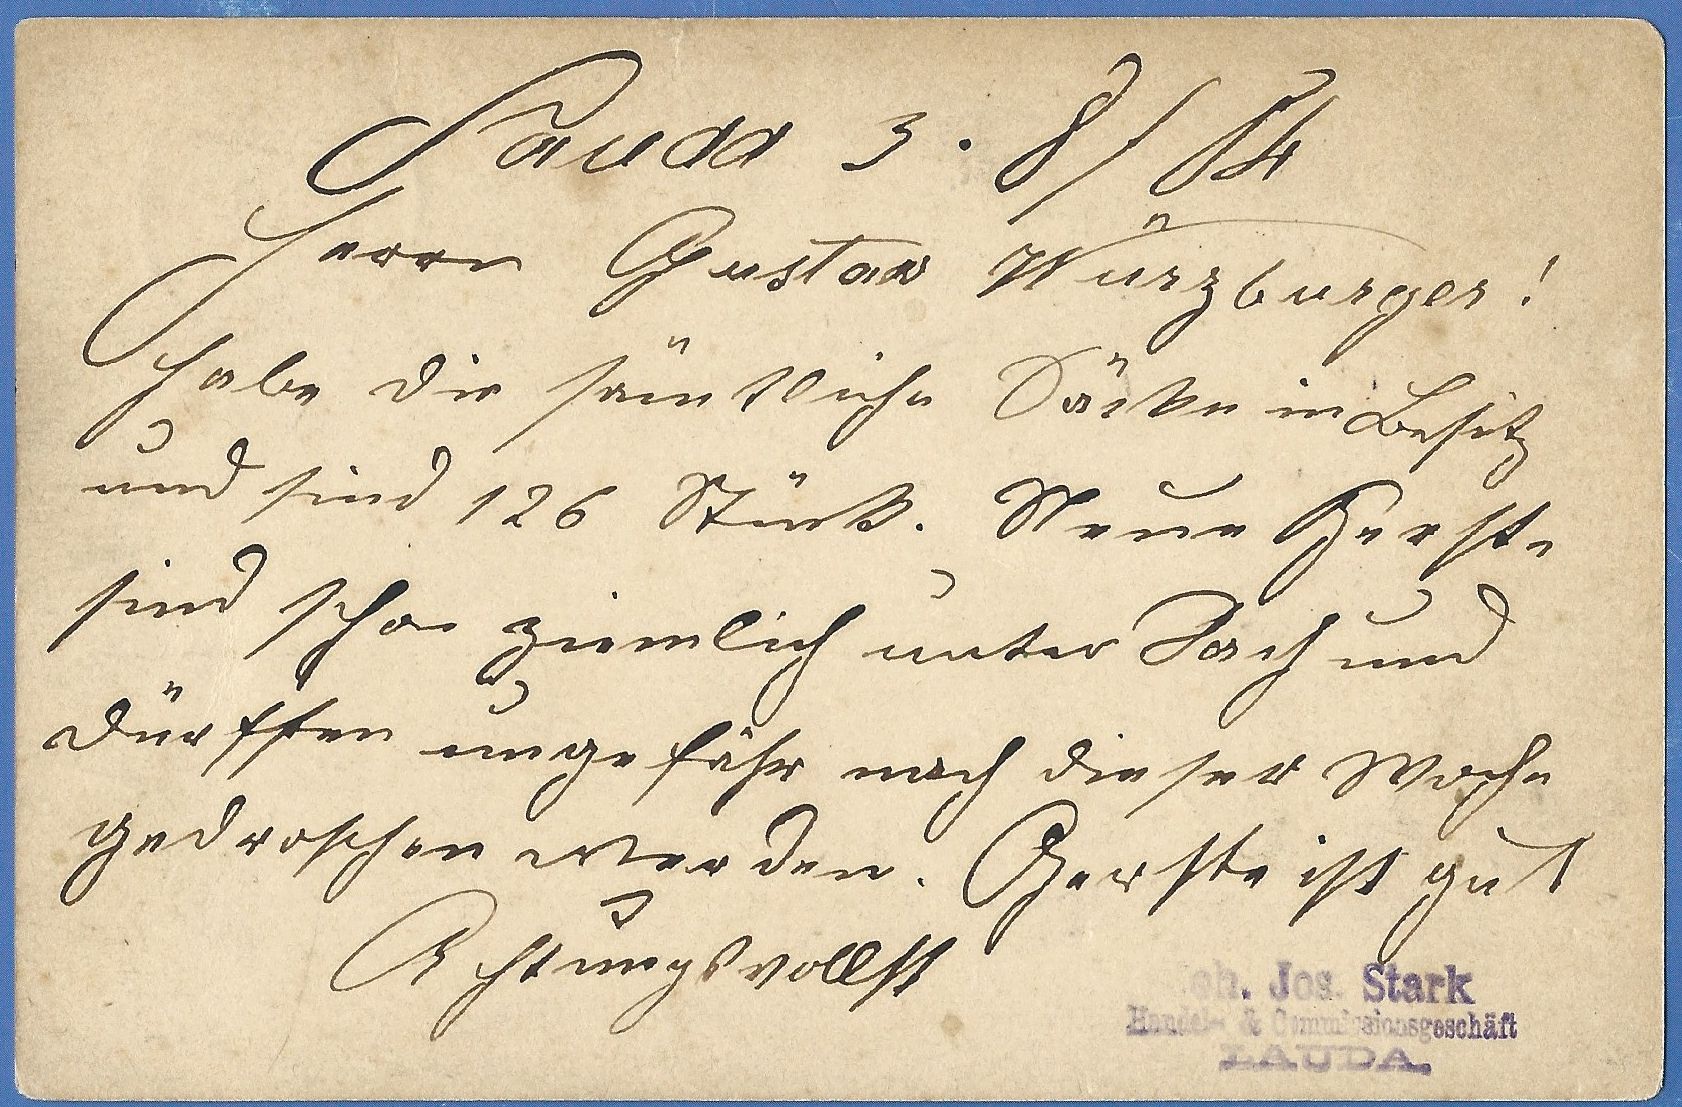 Lauda 3. 8/84
Herrn Gustav Würzburger!
Habe die sämtliche Säcke in Besitz
und sind 126 Stück. Neue Gerste
sind schon ziemlich unter Dach und
dürften ungefähr nach dieser Woche
gedroschen werden. Gerste ist gut
Achtungsvollst
Jos. Stark
Handel- & Commissionsgeschäft
LAUDA.